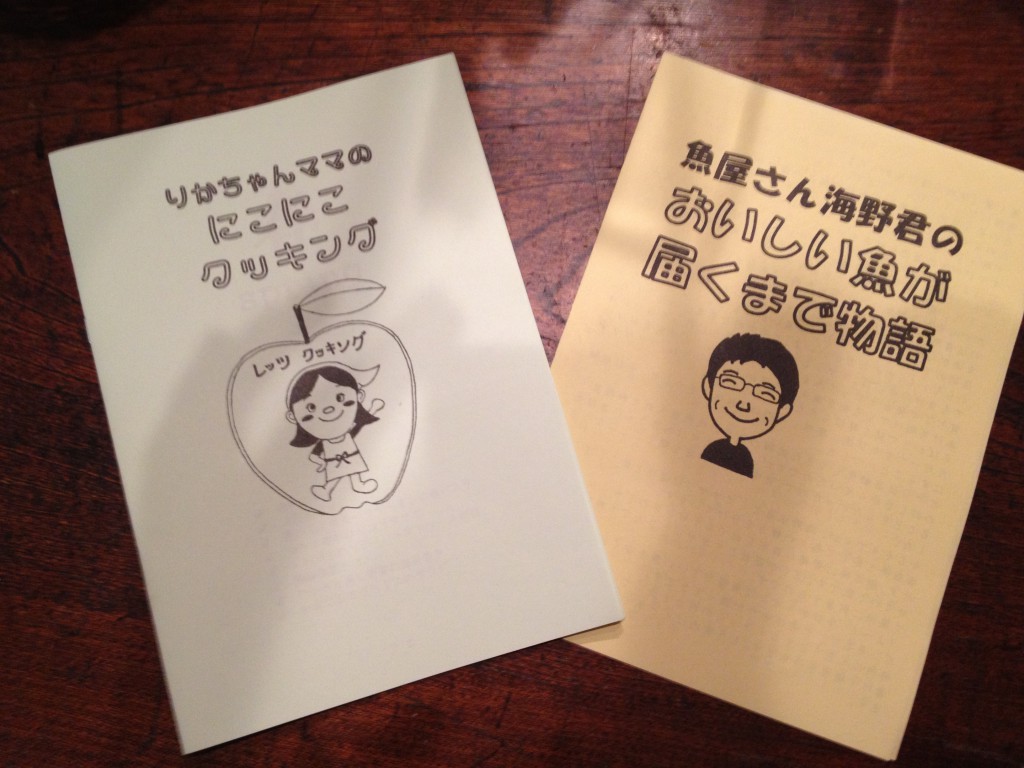 りかちゃんママの
にこにこ
クッキング
レッツ クッキング
魚屋さん海野君の
おいしい魚が
届くまで物語